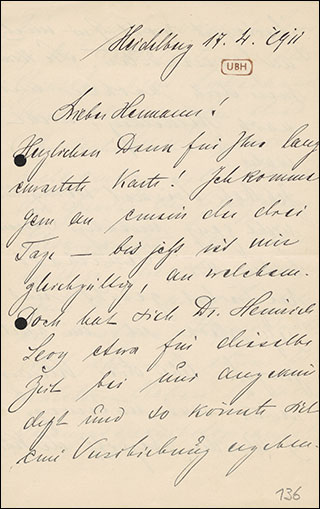 Heidelberg 17. 4. 1911
UBH
Lieber Hermann!
Herzlichen Dank für Ihre lang
erwartete Karte! Ich komme
gern an einem der drei
Tage – bis jetzt ist mir
gleichgültig, an welchem.
Doch hat sich Dr. Heinrich
Levy etwa für dieselbe
Zeit bei mir angekün
digt und so könnte sich
eine Verschiebung ergeben.
136